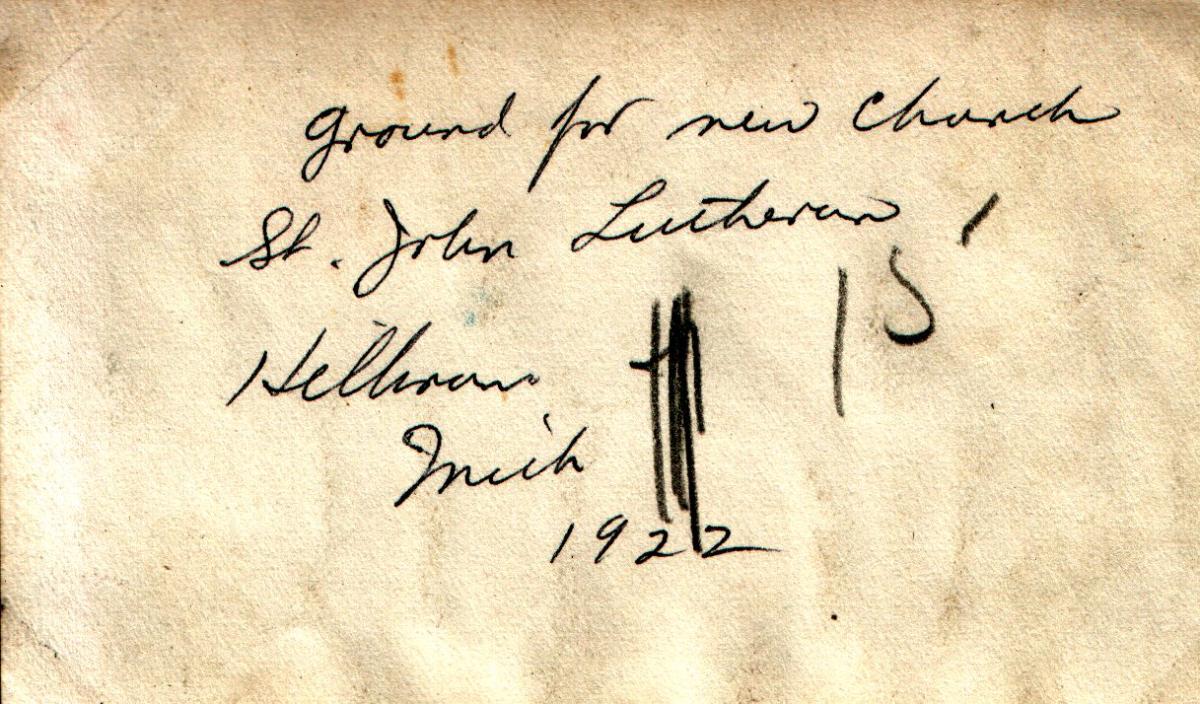 Ground for new Church
St. John Lutheran
15
Hillman
Mich
1922